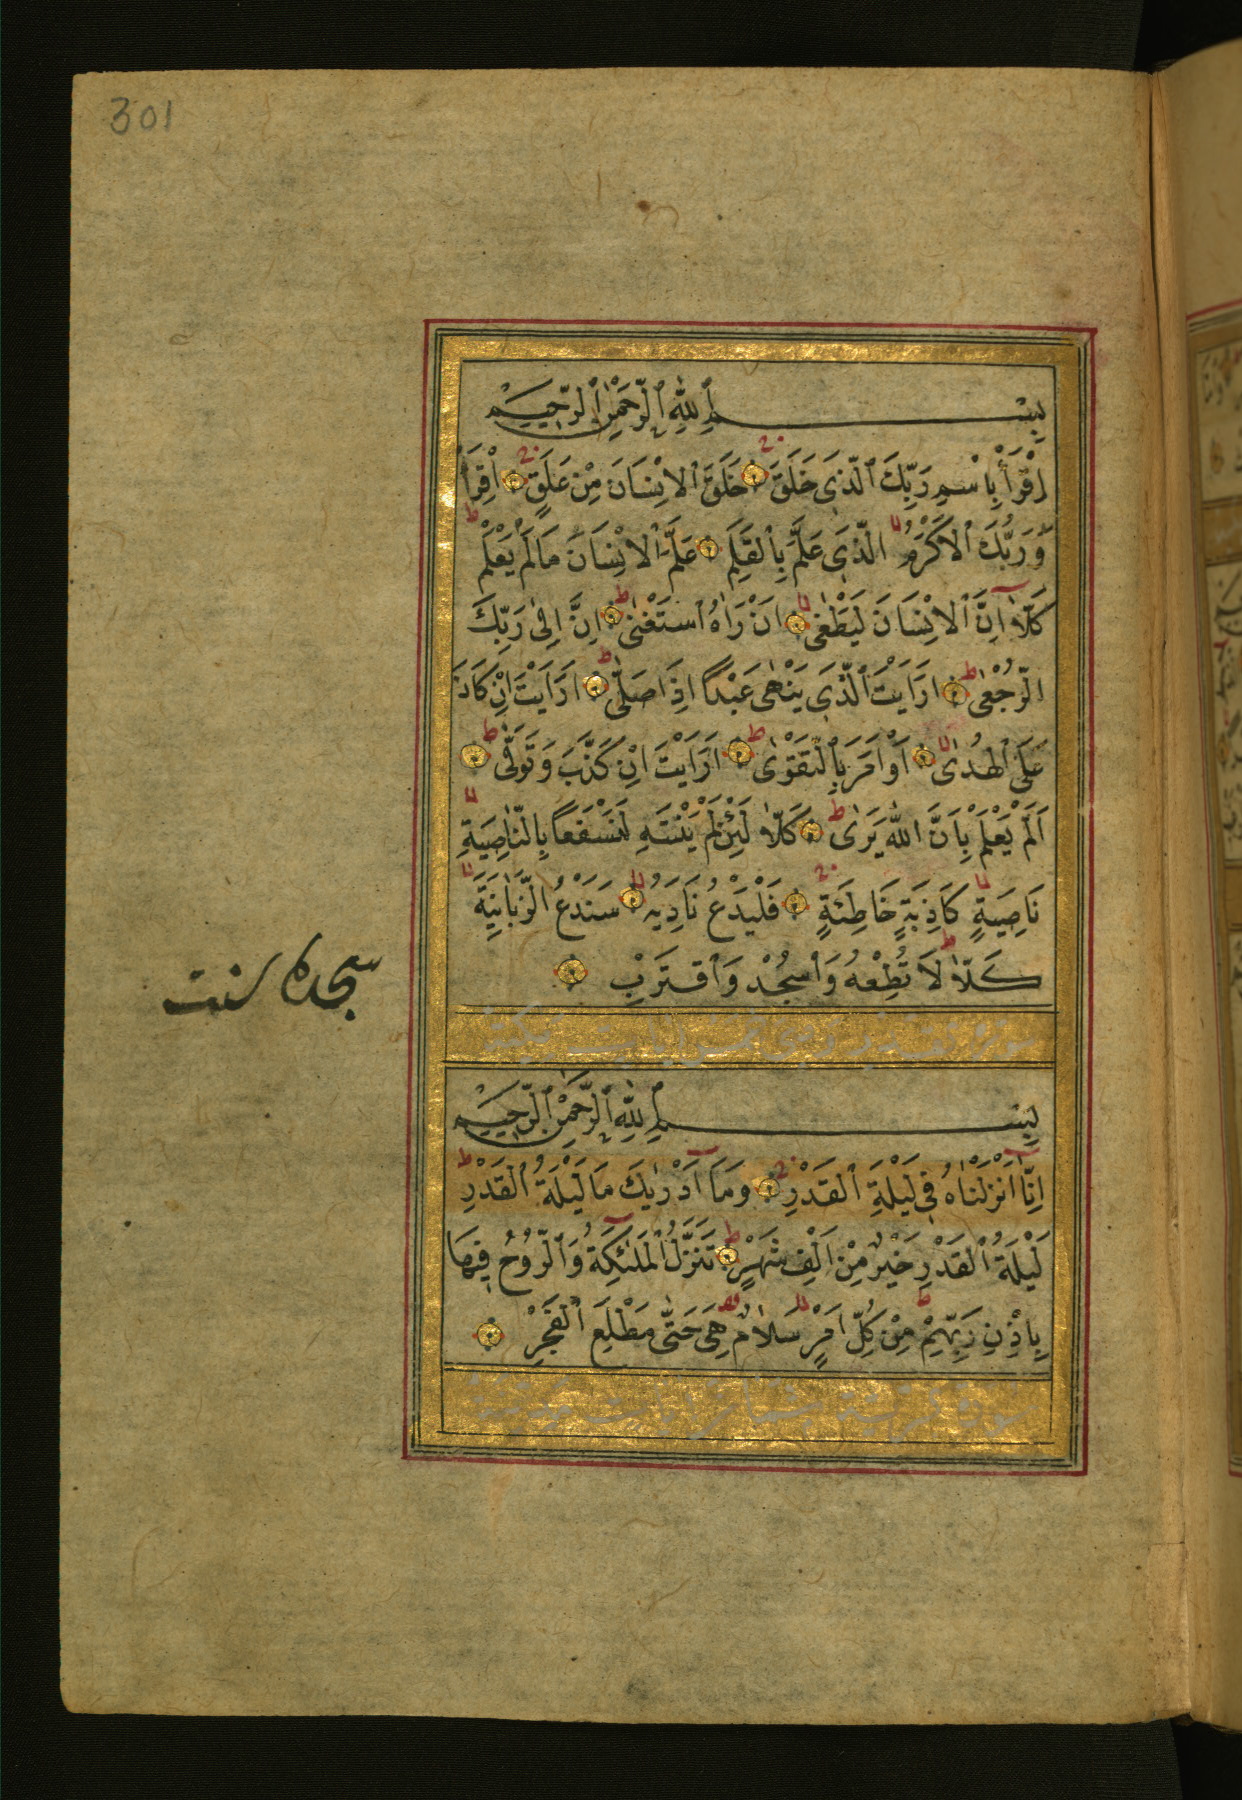 301
بِسْمِ ٱللَّهِ ٱلرَّحْمٰنِ ٱلرَّحِيمِ
اِقْرَأْ بِاسْمِ رَبِّكَ ٱلَّذِي خَلَقَ خَلَقَ ٱلْاِنْسَانَ مِنْ عَلَقٍ اِقْرَأْ
وَرَبُّكَ ٱلْاَكْرَمُ الَّذِي عَلَّمَ بِٱلْقَلَمِ عَلَّمَ ٱلْاِنْسَانَ مَا لَمْ يَعْلَمْ
كَلَّا اِنَّ ٱلْاِنْسَانَ لَيَطْغٰى اَنْ رَاٰهُ ٱسْتَغْنٰى اِنَّ اِلٰى رَبِّكَ
الرُّجْعٰى اَرَاَيْتَ ٱلَّذِي يَنْهٰى عَبْدًا اِذَا صَلّٰى اَرَاَيْتَ اِنْ كَانَ
عَلَى ٱلْهُدٰى اَوْ اَمَرَ بِٱلتَّقْوٰى اَرَاَيْتَ اِنْ كَذَّبَ وَتَوَلّٰى
اَلَمْ يَعْلَمْ بِاَنَّ اللّٰهَ يَرٰى كَلَّا لَئِنْ لَمْ يَنْتَهِ لَنَسْفَعًا بِالنَّاصِيَةِ
نَاصِيَةٍ كَاذِبَةٍ خَاطِئَةٍ فَلْيَدْعُ نَادِيَهُ سَنَدْعُ الزَّبَانِيَةَ
كَلَّا لَا تُطِعْهُ وَٱسْجُدْ وَٱقْتَرِبْ
سجده سنت
بِسْمِ ٱللَّهِ ٱلرَّحْمٰنِ ٱلرَّحِيمِ
اِنَّا اَنْزَلْنَاهُ فِي لَيْلَةِ ٱلْقَدْرِ وَمَا اَدْرٰيكَ مَا لَيْلَةُ ٱلْقَدْرِ
لَيْلَةُ ٱلْقَدْرِ خَيْرٌ مِنْ اَلْفِ شَهْرٍ تَنَزَّلُ ٱلْمَلٰئِكَةُ وَٱلرُّوحُ فِيهَا
بِاِذْنِ رَبِّهِمْ مِنْ كُلِّ اَمْرٍ سَلَامٌ هِيَ حَتّٰى مَطْلَعِ ٱلْفَجْرِ